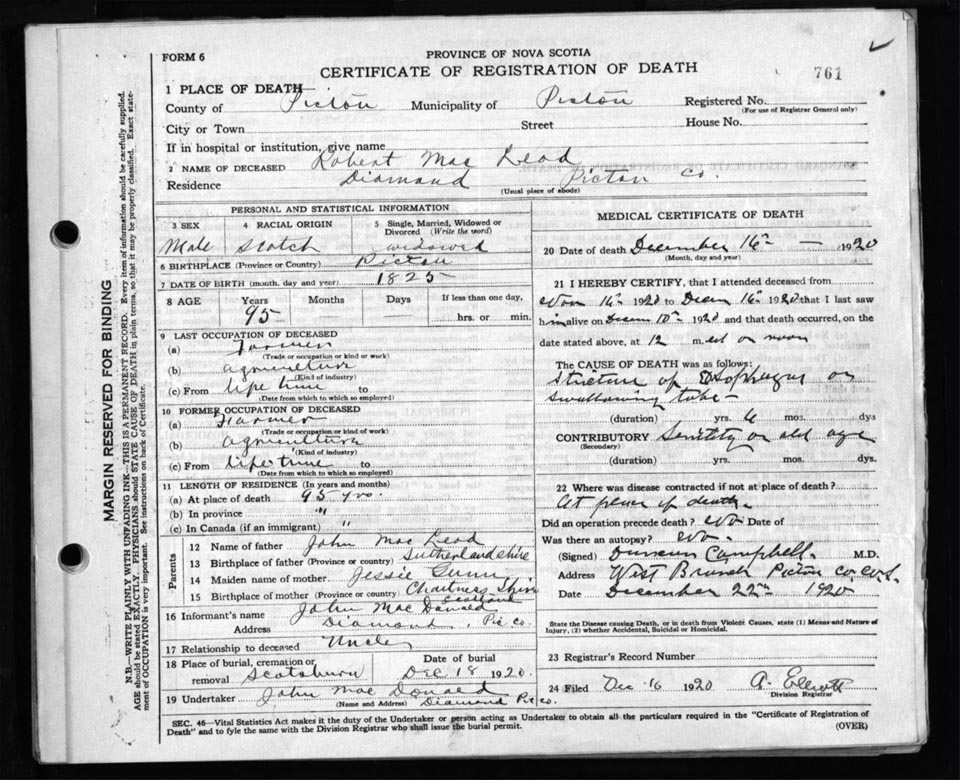 FORM 6
PROVINCE OF NOVA SCOTIA
CERTIFICATE OF REGISTRATION OF DEATH
761
1 PLACE OF DEATH
County of Pictou Municipality of Pictou Registered No.
(For use of Registrar General only)
City or Town Street House No.
If in hospital or institution, give name
2 NAME OF DECEASED Robert Mac Leod
Residence Diamond Pictou Co.
(Usual place of abode)
PERSONAL AND STATISTICAL INFORMATION
3 SEX 4 RACIAL ORIGIN 5 Single, Married, Widowed or Divorced (Write the word)
Male Scotch widowed
6 BIRTHPLACE (Province or Country) Pictou
7 DATE OF BIRTH (month, day and year) 1825
8 AGE Years Months Days If less than one day,
95 hrs. or min.
9 LAST OCCUPATION OF DECEASED
(a) Farmer
(Trade or occupation or kind or work)
(b) agriculture
(Kind of industry)
(c) From life time to
(Date from which to which so employed)
10 FORMER OCCUPATION OF DECEASED
(a) Farmer
(Trade or occupation or kind of work)
(b) agriculture
(Kind of industry)
(c) From life time to
(Date from which to which so employed)
11 LENGTH OF RESIDENCE (In years and months)
(a) At place of death 95 yrs.
(b) In province "
(c) In Canada (if an immigrant) "
Parents
12 Name of father John Mac Leod
13 Birthplace of father (Province or country) Sutherlandshire
14 Maiden name of mother Jessie Gunn
15 Birthplace of mother (Province or country) Chaitness Shire
Scotland
16 Informant's name John Mac Donald
Address Diamond, Pic Co.
17 Relationship to deceased Uncle
18 Place of burial, cremation or removal Scotsburn Date of burial Dec 18 1920.
19 Undertaker John Mac Donald
(Name and Address) Diamond Pic Co.
MEDICAL CERTIFICATE OF DEATH
20 Date of death December 16th — 1920
(Month, day and year)
21 I HEREBY CERTIFY, that I attended deceased from
16th 1920 to 16th 1920 that I last saw
him alive on 10th 1920 and that death occurred, on the
date stated above, at 12 m. noon
The CAUSE OF DEATH was as follows:
Stricture of Esophagus or
swallowing tube —
(duration) yrs. 6 mos. dys
CONTRIBUTORY Senility or old age
(Secondary)
(duration) yrs. mos. dys.
22 Where was disease contracted if not at place of death?
At place of death.
Did an operation precede death? No Date of
Was there an autopsy? No.
(Signed) Duncan Campbell. M.D.
Address West Branch Pictou Co. N.S.
Date December 22nd 1920
State the Disease causing Death, or in death from Violent Causes, state (1) Means and Nature of
Injury, (2) whether Accidental, Suicidal or Homicidal.
23 Registrar's Record Number
24 Filed Dec 16 1920
Division Registrar
SEC. 46—Vital Statistics Act makes it the duty of the Undertaker or person acting as Undertaker to obtain all the particulars required in the "Certificate of Registration of
Death" and to fyle the same with the Division Registrar who shall issue the burial permit. (OVER)
MARGIN RESERVED FOR BINDING
N.B.—WRITE PLAINLY WITH UNFADING INK—THIS IS A PERMANENT RECORD. Every item of information should be carefully supplied.
AGE should be stated EXACTLY. PHYSICIANS should STATE CAUSE OF DEATH in plain terms, so that it may be properly classified. Exact statement of OCCUPATION is very important. See instructions on back of Certificate.